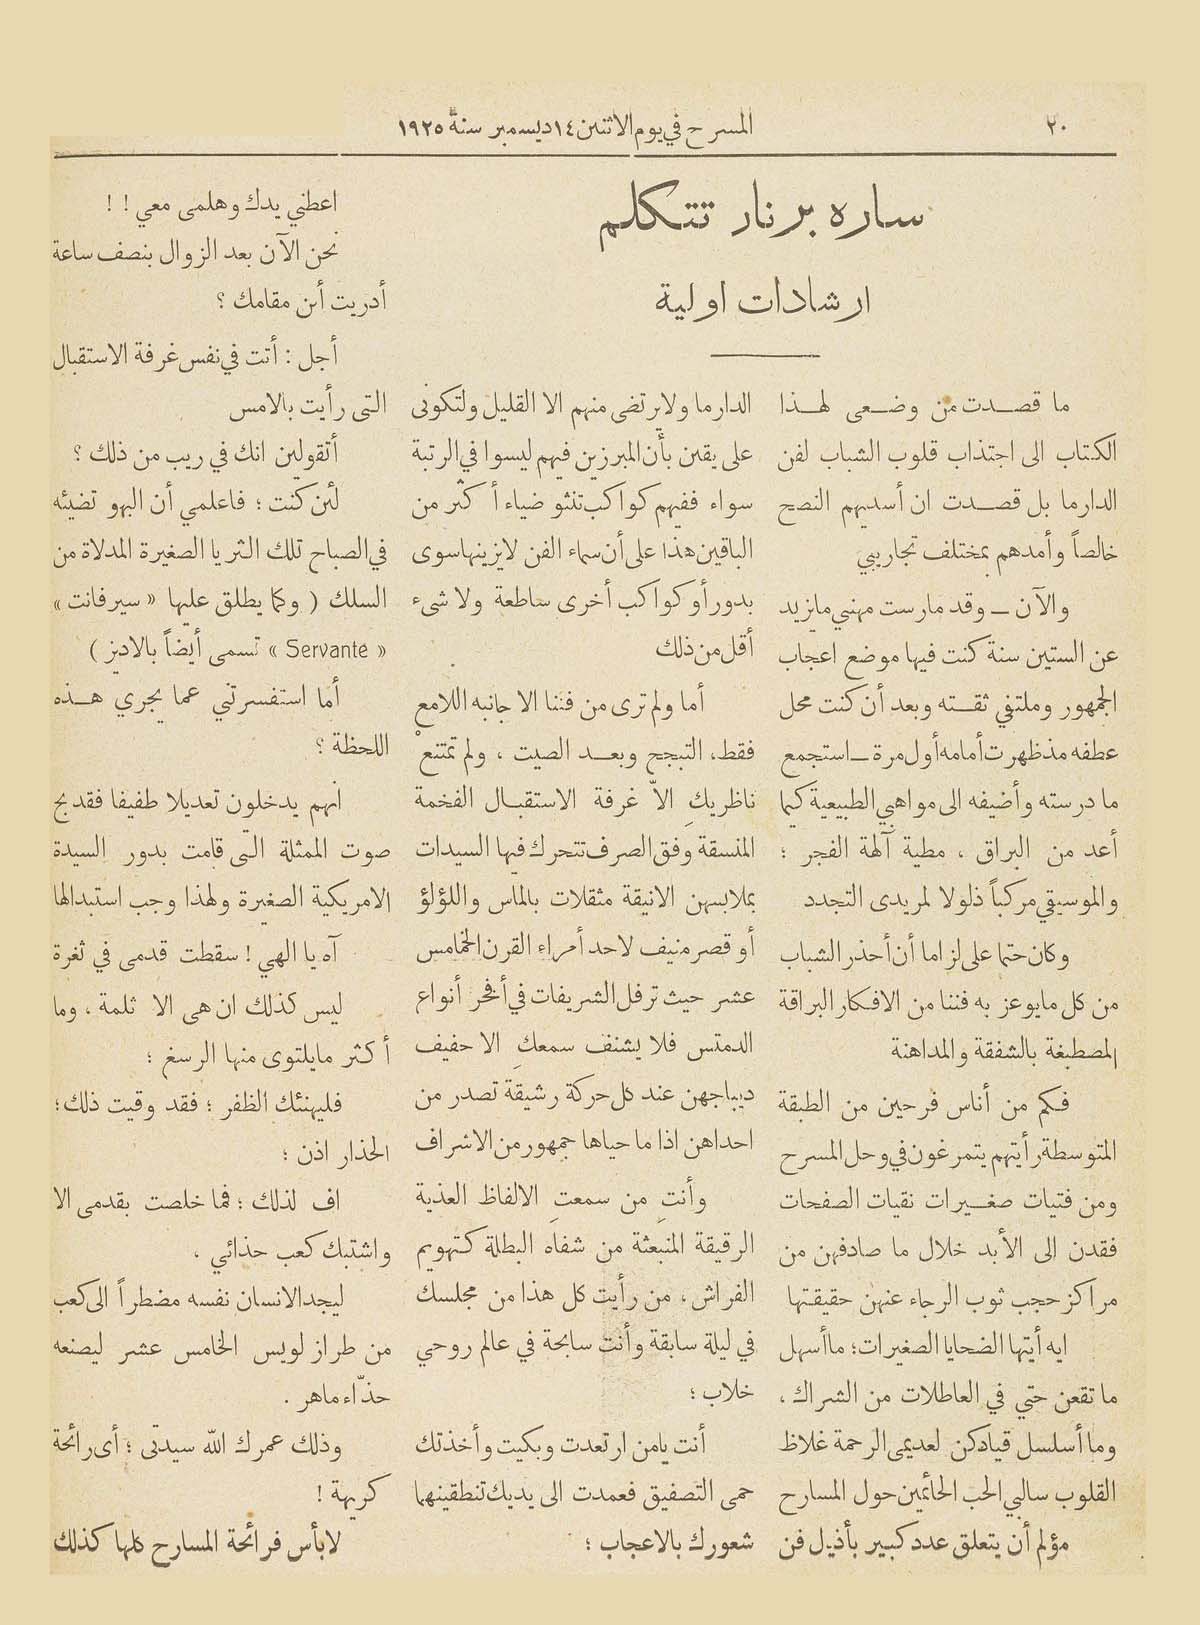 ٢٠
المسرح في يوم الاثنين ١٤ ديسمبر سنة ١٩٢٥
ساره برنار تتكلم
ارشادات اولية
ما قصدت من وضعى لهذا
الكتاب الى اجتذاب قلوب الشباب لفن
الدارما بل قصدت ان أسديهم النصح
خالصاً وأمدهم بمختلف تجاريبي
والآن ـ وقد مارست مهنتي مايزيد
عن الستين سنة كنت فيها موضع اعجاب
الجمهور وملتقي ثقته وبعد أن كنت محل
عطفه مذ ظهرت أمامه أول مرة ـ استجمع
ما درسته وأضيفه الى مواهبي الطبيعية كيما
أعد من البراق ، مطية آلهة الفجر ؛
والموسيقي مركباً ذلولا لمريدى التجدد
وكان حتما على لزاما أن أحذر الشباب
من كل مايوعز به فننا من الافكار البراقة
المصطبغة بالشفقة والمداهنة
فكم من أناس فرحين من الطبقة
المتوسطة رأيتهم يتمرغون في وحل المسرح
ومن فتيات صغيرات نقيات الصفحات
فقدن الى الأبد خلال ما صادفهن من
مراكز حجب ثوب الرجاء عنهن حقيقتها
ايه أيتها الضحايا الصغيرات ؛ ما أسهل
ما تقعن حتي في العاطلات من الشراك ،
وما أسلسل قيادكن لعديمى الرحمة غلاظ
القلوب سالبي الحب الحائمين حول المسارح
مؤلم أن يتعلق عدد كبير بأذيل فن
الدارما ولا يرتضى منهم الا القليل ولتكونى
على يقين بأن المبرزين فيهم ليسوا في الرتبة
سواء ففيهم كواكب تنثو ضياء أكثر من
الباقين هذا على أن سماء الفن لايزينها سوى
بدور أو كواكب أخرى ساطعة ولا شىء
أقل من ذلك
أما ولم ترى من فننا الا جانبه اللامع
فقط، التبجح وبعد الصيت ، ولم تمتنعْ
ناظريكِ الاّ غرفة الاستقبال الفخمة
المنسقة وَفق الصرف تتحرك فيها السيدات
بملابسهن الانيقة مثقلات بالماس واللؤلؤ
أو قصر منيف لاحد أمراء القرن الخامس
عشر حيث ترفل الشريفات في أفخر أنواع
الدمتس فلا يشنف سمعكِ الا حفيف
ديباجهن عند كل حركة رشيقة تصدر من
احداهن اذا ما حياها جمهور من الاشراف
وأنتِ من سمعتِ الالفاظ العذبة
الرقيقة المنبعثة من شفاه البطلة كتهويم
الفراش ، من رأيت كل هذا من مجلسك
في ليلة سابقة وأنت سابحة في عالم روحي
خلاب ؛
أنت يامن ارتعدت وبكيت وأخذتك
حمى التصفيق فعمدت الى يديك تنطقينهما
شعورك بالاعجاب ؛
اعطني يدك وهلمى معي ! !
نحن الآن بعد الزوال بنصف ساعة
أدريت أين مقامك ؟
أجل : أنت في نفس غرفة الاستقبال
التى رأيت بالامس
أتقولين انك في ريب من ذلك ؟
لئن كنت ؛ فاعلمي أن البهو تضيئه
في الصباح تلك الثريا الصغيرة المدلاة من
السلك ( وكما يطلق عليها « سيرفانت »
« Servante » تسمى أيضاً بالاديز )
أما استفسرتني عما يجري هذه
اللحظة ؟
انهم يدخلون تعديلا طفيفا فقد بج
صوت الممثلة التى قامت بدور السيدة
الامريكية الصغيرة ولهذا وجب استبدالها
آه يا الهي ! سقطت قدمى في ثغرة
ليس كذلك ان هى الا ثلمة ، وما
أكثر مايلتوى منها الرسغ ؛
فليهنئك الظفر ؛ فقد وقيت ذلك ؛
الحذار اذن ؛
اف لذلك ؛ فما خلصت بقدمى الا
واشتبك كعب حذائي ،
ليجد الانسان نفسه مضطراً الى كعب
من طراز لويس الخامس عشر ليصنعه
حذّاء ماهر .
وذلك عمرك الله سيدتى ؛ أى رائحة
كريهة !
لابأس فرائحة المسارح كلها كذلك